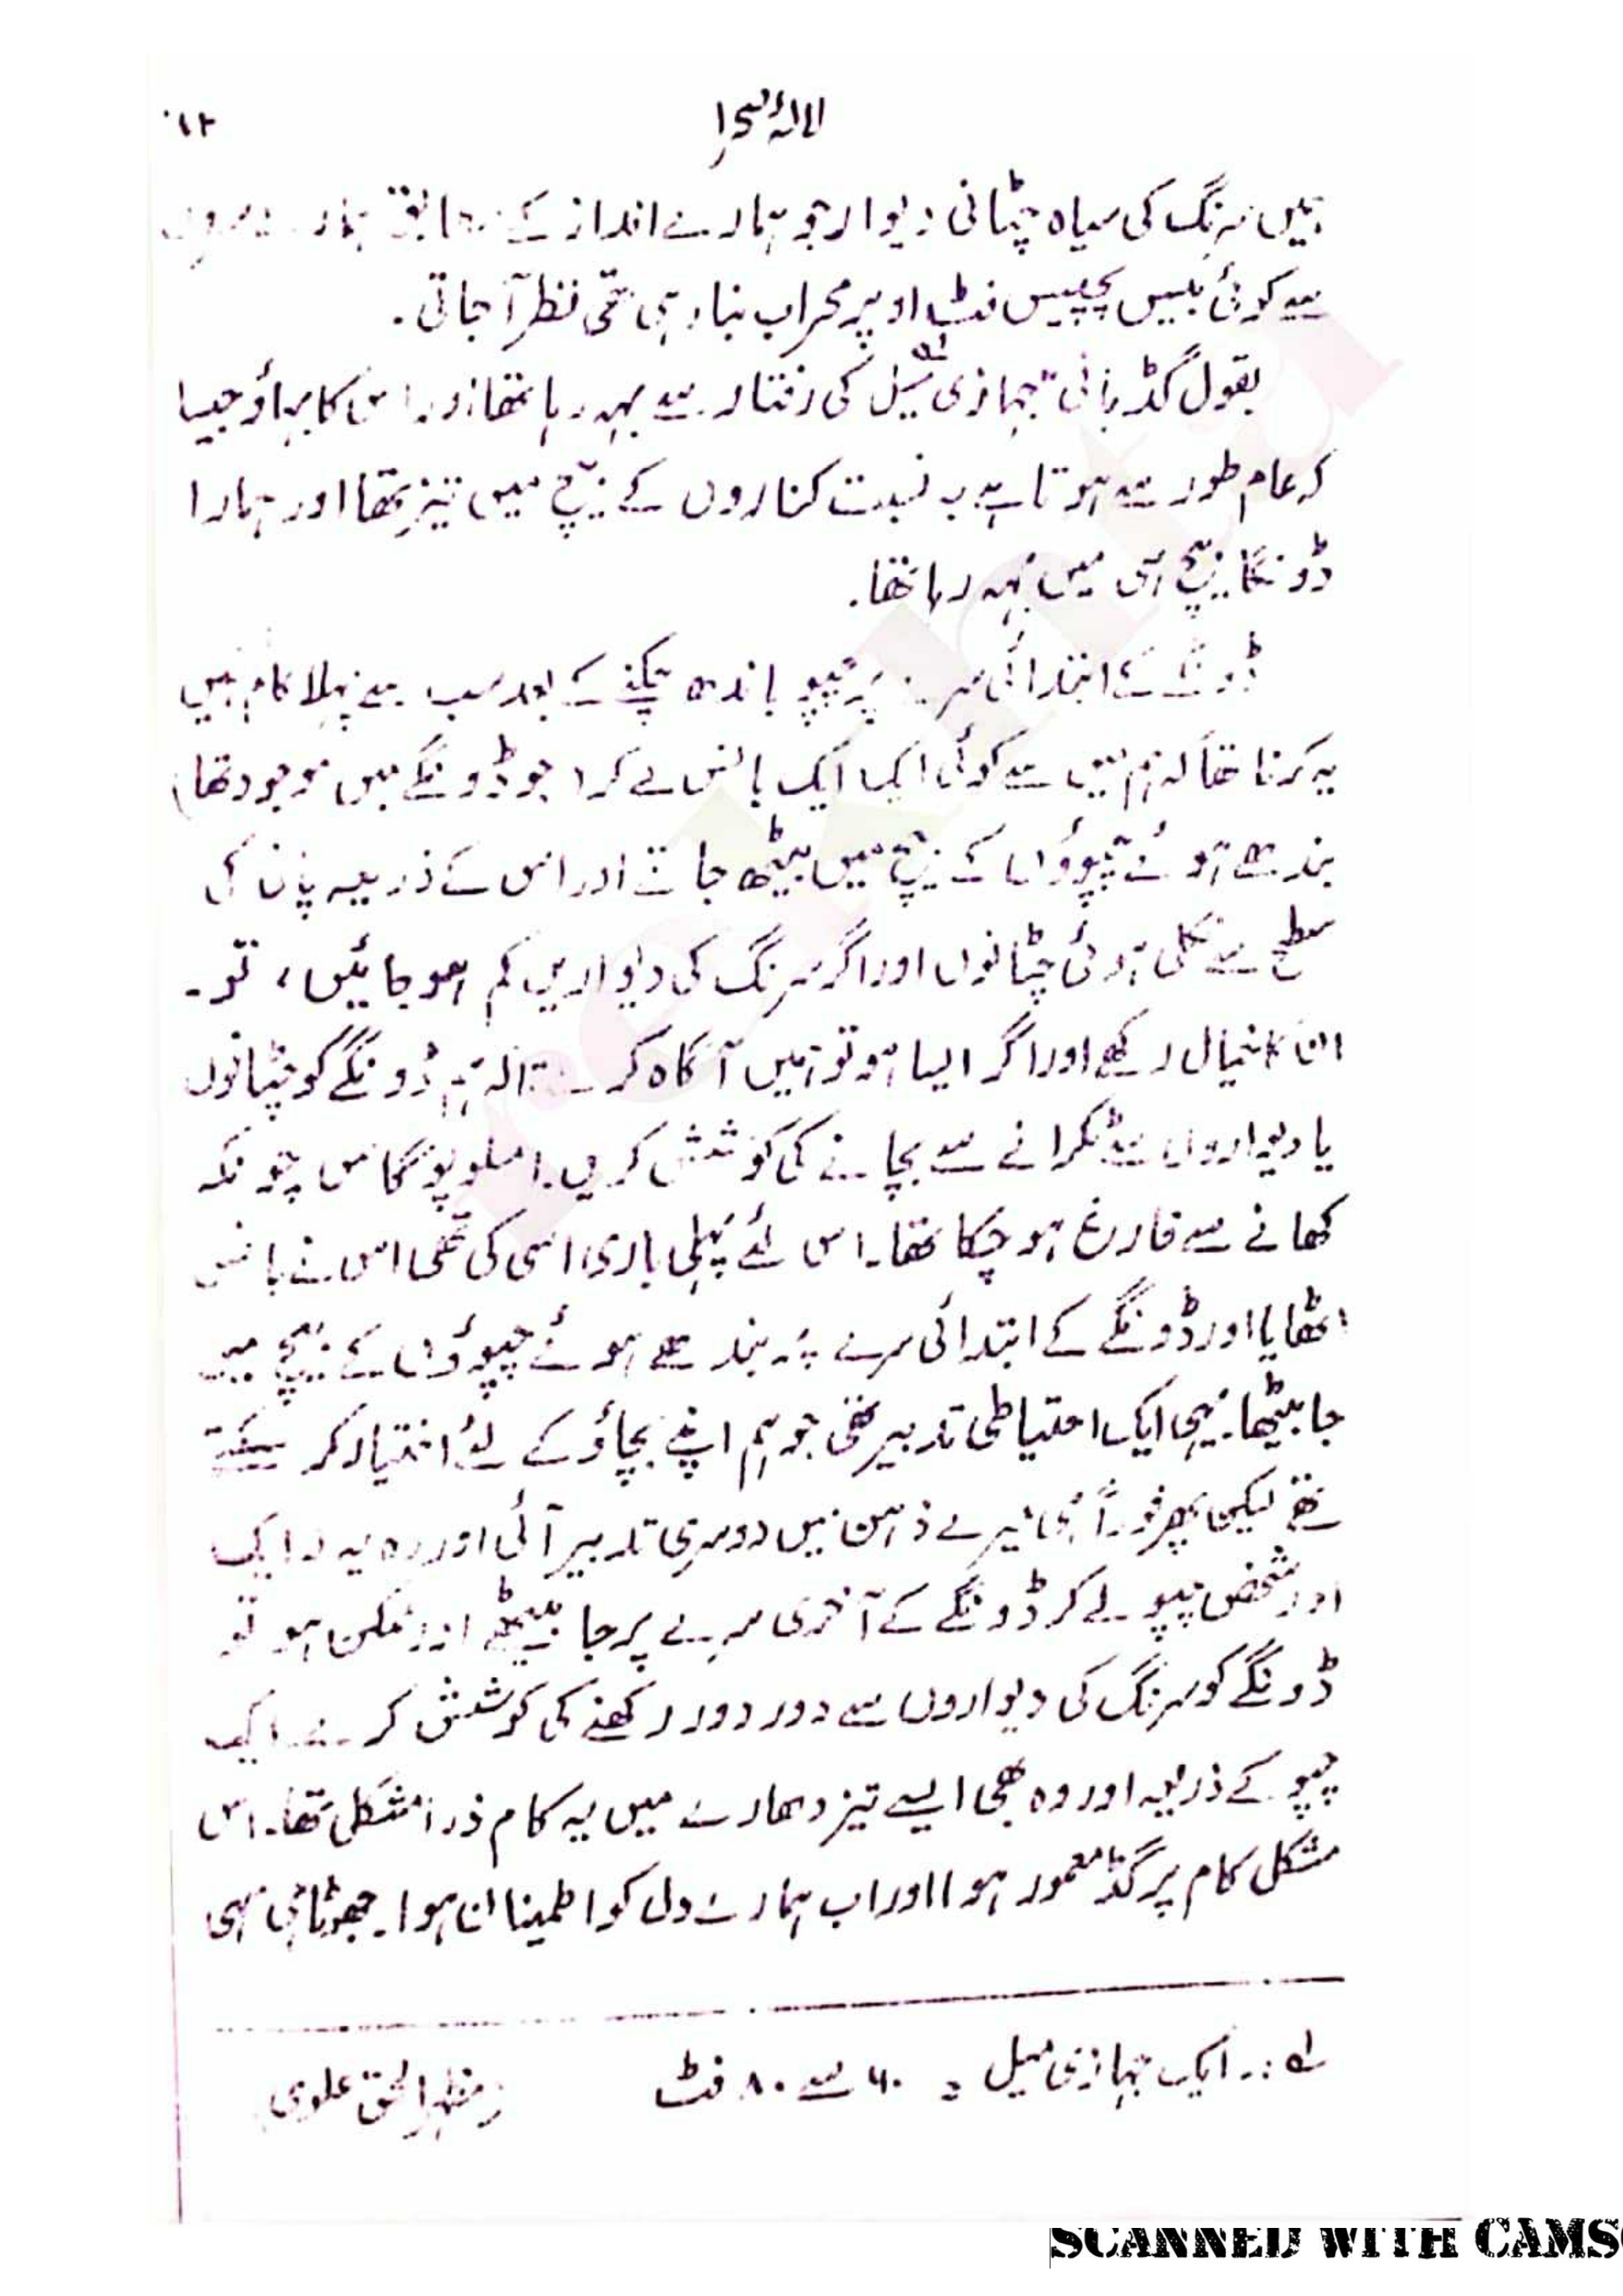 لالۂ صحرا
ہمیں سرنگ کی سیاہ چٹانی دیوار جو ہمارے انداز کے مطابق ہمارے سروں
سے کوئی بیس پچیس فٹ اوپر محراب بنا رہی تھی نظر آجاتی۔
بقول گڈ پانی جہازی میل کی رفتار سے بہہ رہا تھا اور اس کا بہاؤ جیسا
کہ عام طور سے ہوتا ہے بہ نسبت کناروں کے بیچ میں تیز تھا اور ہمارا
ڈونگا بیچ ہی میں بہہ رہا تھا۔
ڈونگے کے ابتدائی سرے پر چپو باندھ چکنے کے بعد سب سے پہلا کام ہمیں
یہ کرنا تھا کہ ہم میں سے کوئی ایک ایک بانس لے کر (جو ڈونگے میں موجود تھا)
بندھے ہوئے چپوؤں کے بیچ میں بیٹھ جائے اور اس کے ذریعہ پانی کی
سطح سے نکلی ہوئی چٹانوں اور اگر سرنگ کی دیواریں کم ہو جائیں، تو۔
ان کا خیال رکھے اور اگر ایسا ہو تو ہمیں آگاہ کرے تاکہ ہم ڈونگے کو چٹانوں
یا دیواروں سے ٹکرانے سے بچانے کی کوشش کریں۔ املوپوگاس چونکہ
کھانے سے فارغ ہو چکا تھا۔ اس لئے پہلی باری اسی کی تھی اس نے بانس
اٹھایا اور ڈونگے کے ابتدائی سرے پر بندھے ہوئے چپوؤں کے بیچ میں
جا بیٹھا۔ یہی ایک احتیاطی تدبیر تھی جو ہم اپنے بچاؤ کے لئے اختیار کر سکتے
تھے لیکن پھر فوراً ہی میرے ذہن میں دوسری تدبیر آئی اور وہ یہ کہ ایک
اور شخص چپو لے کر ڈونگے کے آخری سرے پر جا بیٹھے اور ممکن ہو تو
ڈونگے کو سرنگ کی دیواروں سے دور دور رکھنے کی کوشش کرے۔ ایک
چپو کے ذریعہ اور وہ بھی ایسے تیز دھارے میں یہ کام ذرا مشکل تھا۔ اس
مشکل کام پر گڈ معمور ہوا اور اب ہمارے دل کو اطمینان ہوا۔ جھوٹا ہی سہی
لہ:۔ ایک جہازی میل = ۶۰ سے ۸۰ فٹ مظہر الحق علوی
SCANNED WITH CAMS